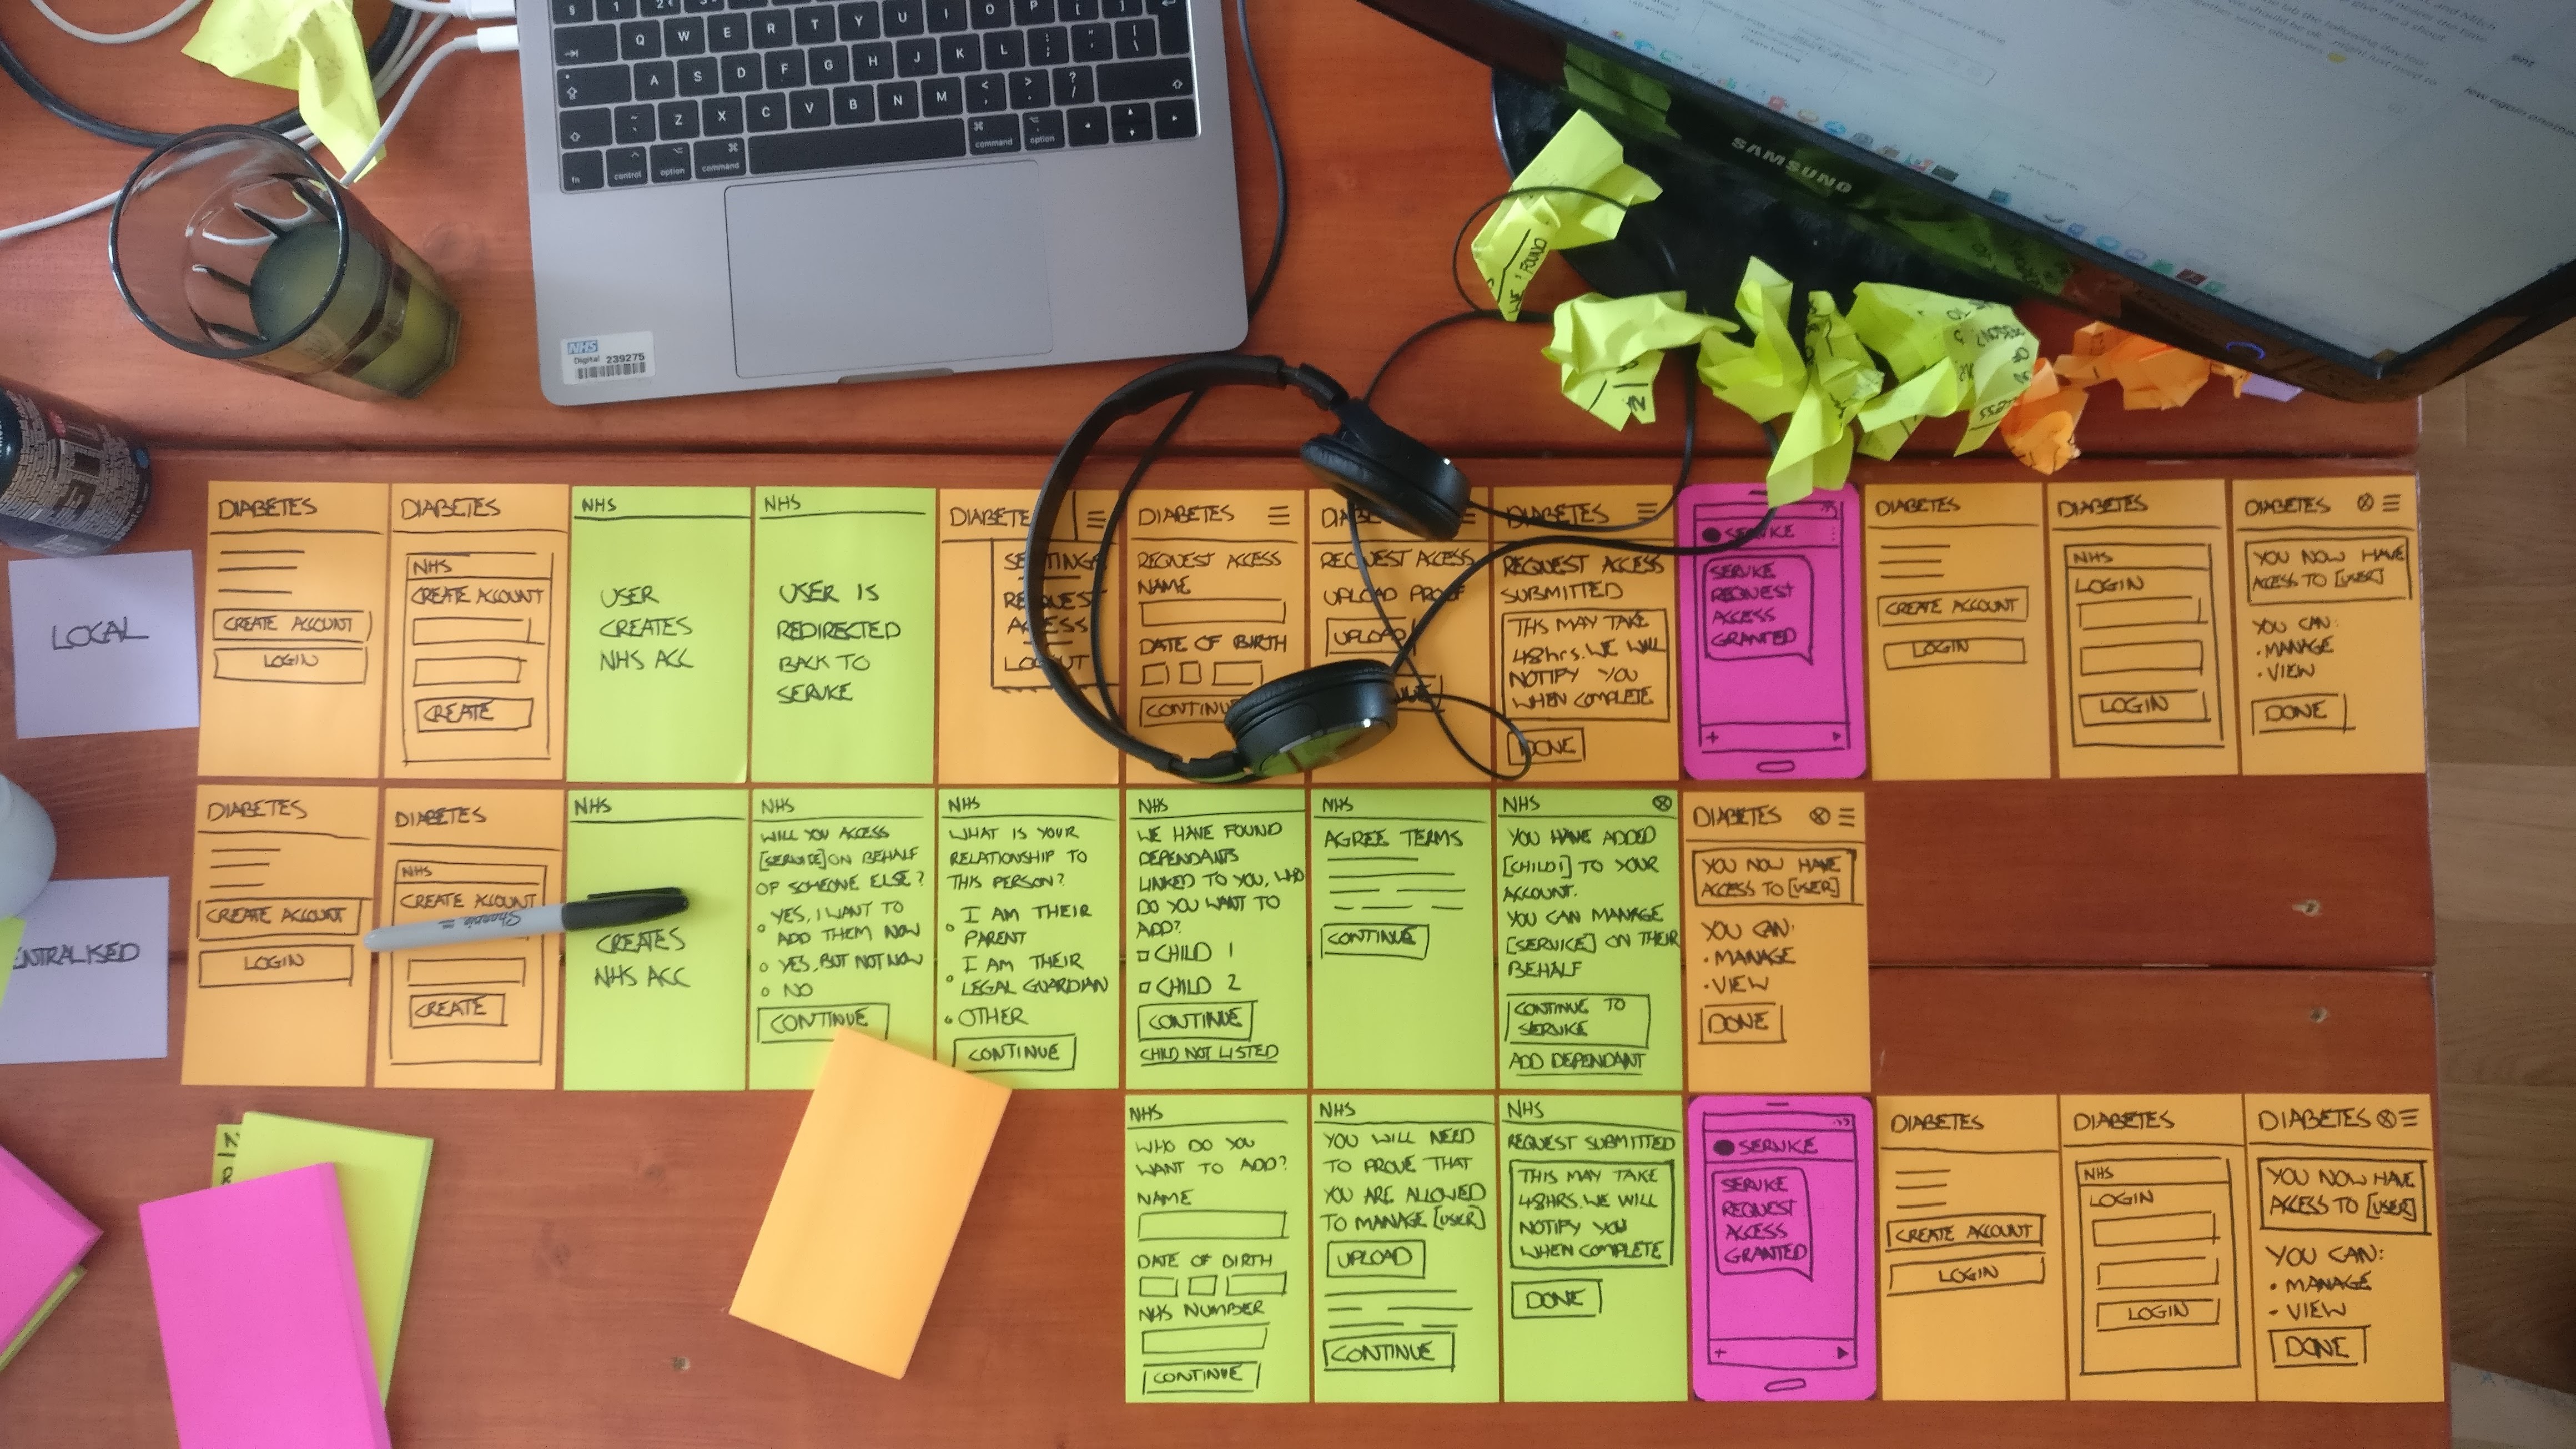 Q W E R T Y U I O P
A S D F G H J K L
Z X C V B N M
fn control option command
command option
NHS
Digital 239275
SAMSUNG
FOUND
LOCAL
DIABETES
CREATE ACCOUNT
LOGIN
DIABETES
NHS
CREATE ACCOUNT
CREATE
NHS
USER
CREATES
NHS ACC
NHS
USER IS
REDIRECTED
BACK TO
SERVICE
DIABETE
SETTINGS
REQUEST
ACCESS
LOGOUT
DIABETES
REQUEST ACCESS
NAME
DATE OF BIRTH
CONTINU
REQUEST ACCESS
UPLOAD PROOF
UPLOAD
DIABETES
REQUEST ACCESS
SUBMITTED
THS MAY TAKE
48hrs. WE WILL
NOTIFY YOU
WHEN COMPLETE
DONE
SERVICE
SERVICE
REQUEST
ACCESS
GRANTED
DIABETES
CREATE ACCOUNT
LOGIN
DIABETES
NHS
LOGIN
LOGIN
DIABETES
YOU NOW HAVE
ACCESS TO [USER]
YOU CAN:
• MANAGE
• VIEW
DONE
ENTRALISED
DIABETES
CREATE ACCOUNT
LOGIN
DIABETES
NHS
CREATE ACCOUNT
Sharpie
CREATE
NHS
CREATES
NHS ACC
NHS
WILL YOU ACCESS
[SERVICE] ON BEHALF
OF SOMEONE ELSE?
YES, I WANT TO
ADD THEM NOW
YES, BUT NOT NOW
NO
CONTINUE
NHS
WHAT IS YOUR
RELATIONSHIP TO
THIS PERSON?
I AM THEIR
PARENT
I AM THEIR
LEGAL GUARDIAN
OTHER
CONTINUE
NHS
WE HAVE FOUND
DEPENDANTS
LINKED TO YOU, WHO
DO YOU WANT TO
ADD?
CHILD 1
CHILD 2
CONTINUE
CHILD NOT LISTED
NHS
AGREE TERMS
CONTINUE
NHS
YOU HAVE ADDED
[CHILD1] TO YOUR
ACCOUNT.
YOU CAN MANAGE
[SERVICE] ON THEIR
BEHALF
CONTINUE TO
SERVICE
ADD DEPENDANT
DIABETES
YOU NOW HAVE
ACCESS TO [USER]
YOU CAN:
• MANAGE
• VIEW
DONE
NHS
WHO DO YOU
WANT TO ADD?
NAME
DATE OF BIRTH
NHS NUMBER
CONTINUE
NHS
YOU WILL NEED
TO PROVE THAT
YOU ARE ALLOWED
TO MANAGE [USER]
UPLOAD
CONTINUE
NHS
REQUEST SUBMITTED
THIS MAY TAKE
48HRS. WE WILL
NOTIFY YOU
WHEN COMPLETE
DONE
SERVICE
SERVICE
REQUEST
ACCESS
GRANTED
DIABETES
CREATE ACCOUNT
LOGIN
DIABETES
NHS
LOGIN
LOGIN
DIABETES
YOU NOW HAVE
ACCESS TO [USER]
YOU CAN:
• MANAGE
• VIEW
DONE